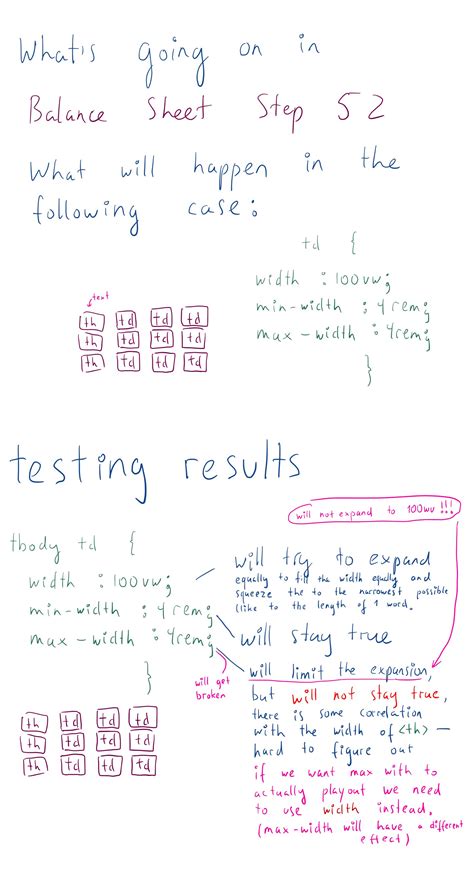 What's going on in
Balance Sheet Step 52
What will happen in the
following case:
td {
width : 100vw;
min-width : 4rem;
max-width : 4rem;
}
text
th td td td
th td td td
th td td td
testing results
will not expand to 100wv !!!
tbody td {
width : 100vw;
min-width : 4rem;
max-width : 4rem;
}
will get
broken
will try to expand
equally to fill the width eqully and
squeeze the to the narrowest possible
(like to the length of 1 word.
will stay true
will limit the expansion,
but will not stay true,
there is some correlation
with the width of <th> —
hard to figure out
if we want max with to
actually playout we need
to use width instead,
(max-width will have a different
effect)
th td td td
th td td td
th td td td